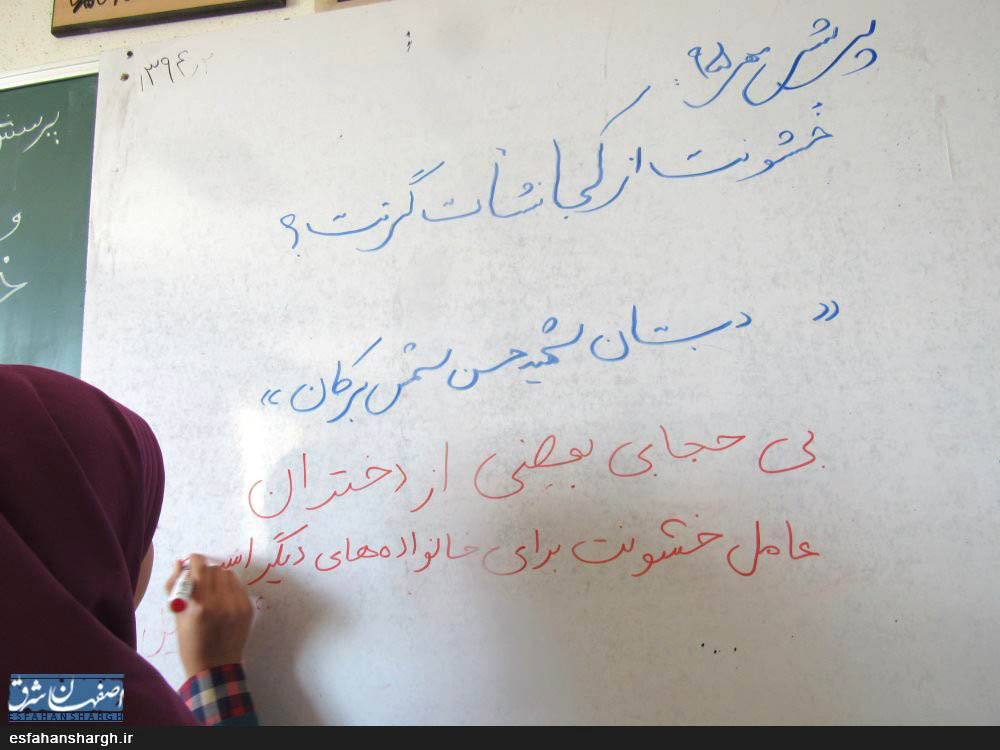 پرسش مهر ۹۵
خشونت از کجا نشأت گرفت؟
« دبستان شهید حسن شمس برکان »
بی حجابی بعضی از دختران
عامل خشونت برای خانواده‌های دیگر است
۱۳۹۴
پرسش
و
اصفهان شرق
ESFAHANSHARGH
esfahanshargh.ir